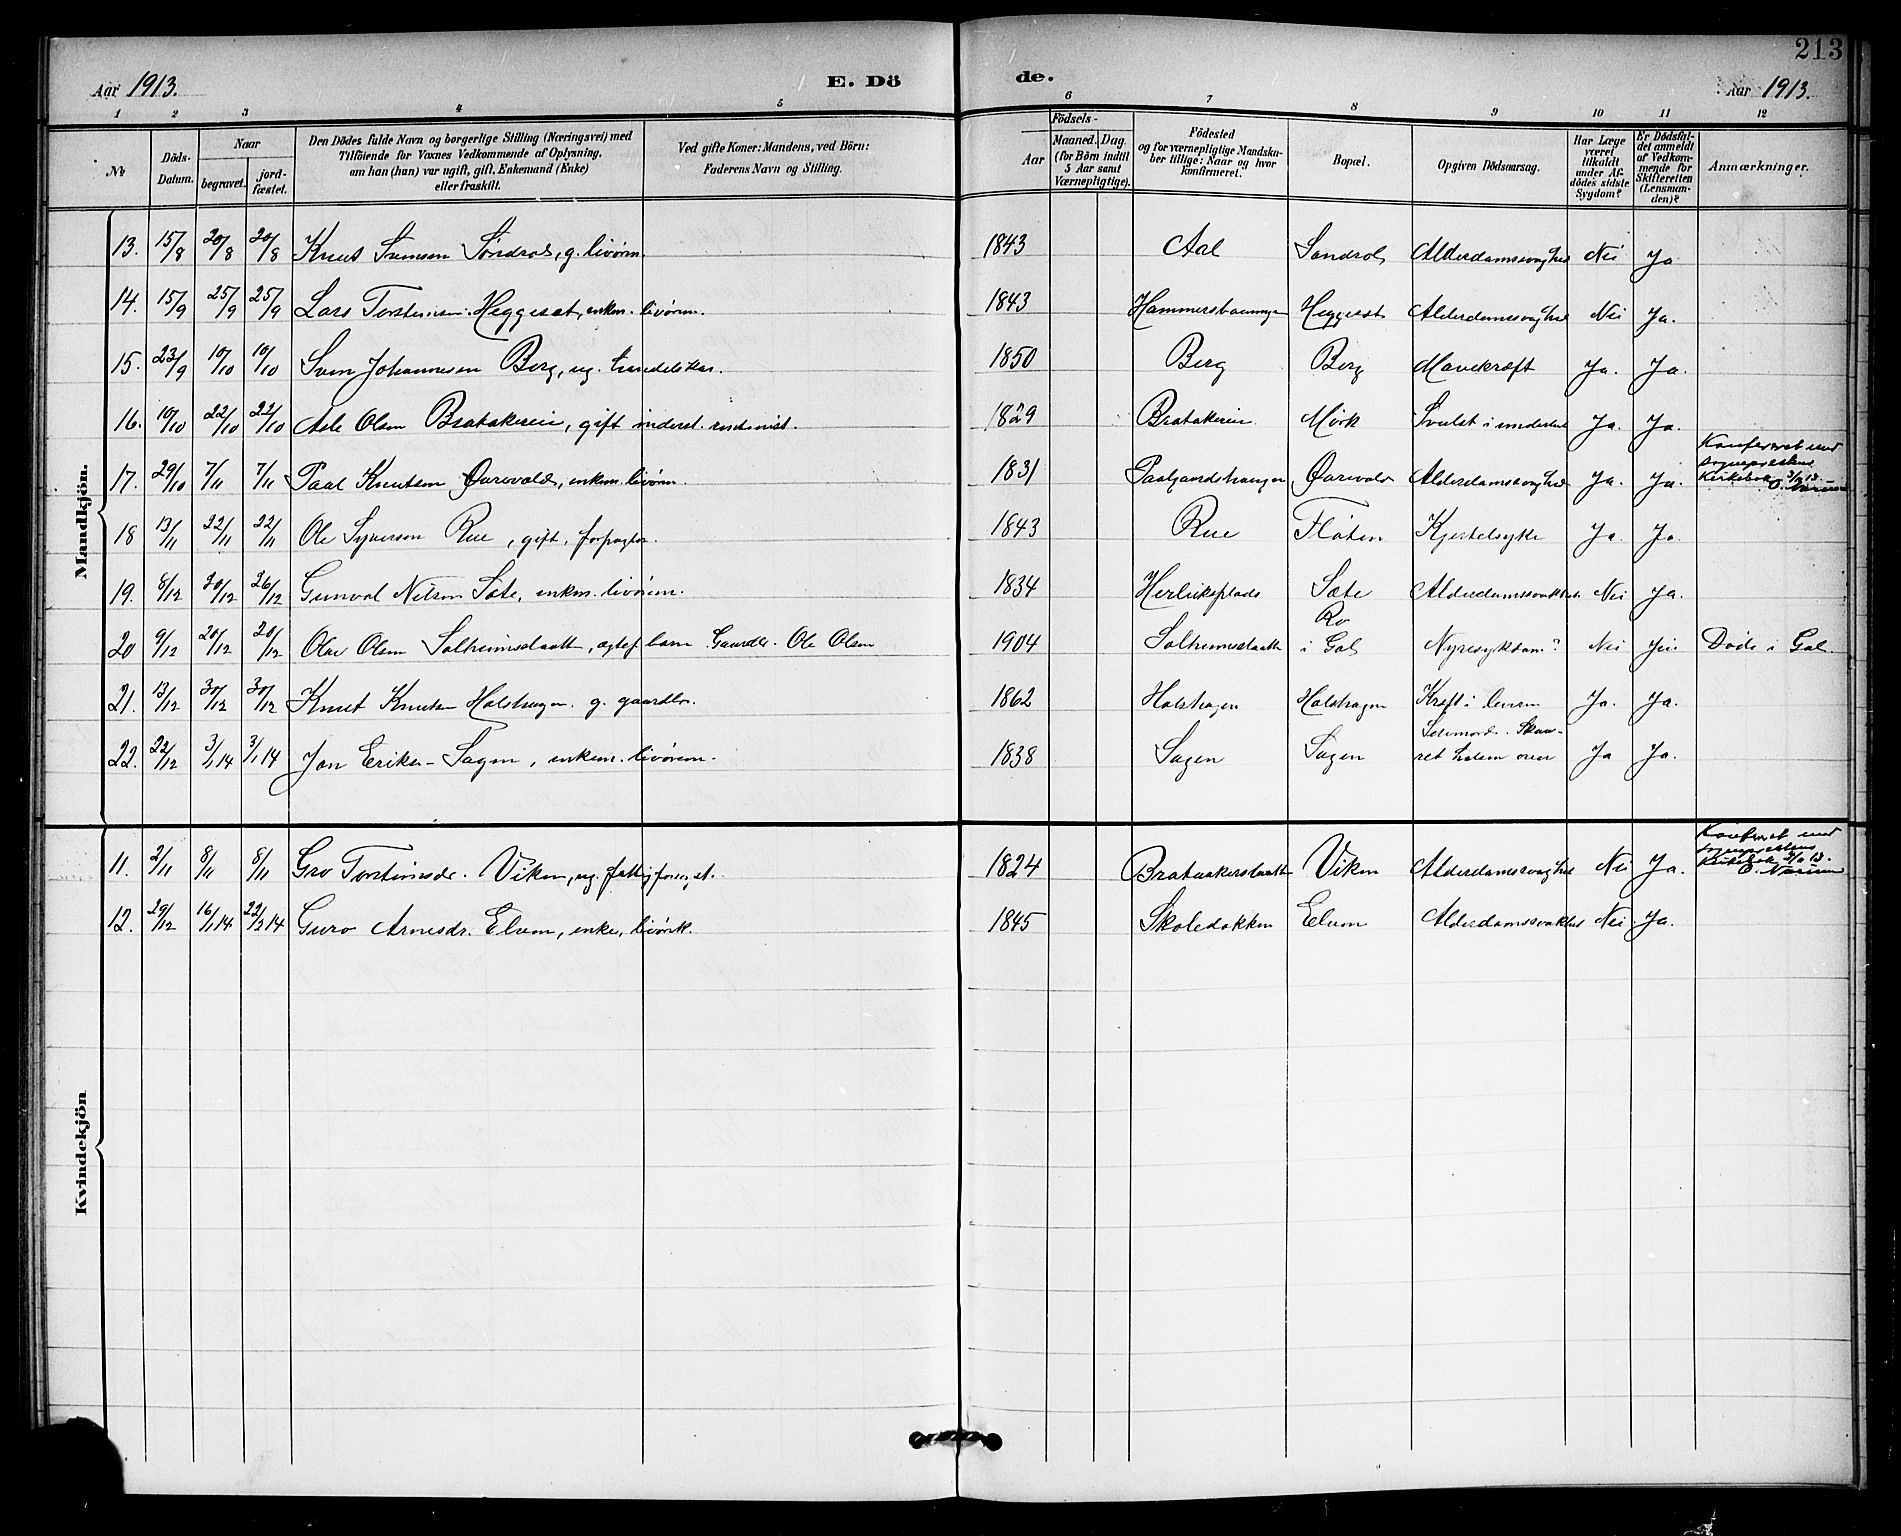 213
Aar 1913.
E. Dö
de.
Aar 1913.
1 2 3 4 5 6 7 8 9 10 11 12
№
Döds-
Datum.
Naar
begravet.
jord-
fæstet.
Den Dödes fulde Navn og borgerlige Stilling (Næringsvei) med
Tilföiende for Voxnes Vedkommende af Oplysning,
om han (hun) var ugift, gift, Enkemand (Enke)
eller fraskilt.
Ved gifte Koner: Mandens, ved Börn:
Faderens Navn og Stilling.
Födsels-
Aar
Maaned.
Dag
(for Börn indtil
5 Aar samt
Værnepligtige).
Födested
og for værnepligtige Mandskaber
ber tillige: Naar og hvor
konfirmeret.
Bopæl.
Opgiven Dödsaarsag.
Har Læge
været
tilkaldt
under Af-
dödes sidste
Sygdom?
Er Dödsfal-
det anmeldt
af Vedkom-
mende for
Skifteretten
(Lensman-
den)?
Anmærkninger.
Mandkjön.
13. 15/8 20/8 20/8 Knut Svensen Søndrol, g. livørm. 1843 Aal Søndrol Alderdomssvaghed Nei Ja
14. 15/9 25/9 25/9 Lars Torsteinsen Heggeset, enkem. livørm. 1843 Heggeset Alderdomssvaghed Nei Ja.
15. 23/9 10/10 10/10 Sven Johannesen Berg, ug. handelskar. 1850 Berg Berg Mavekræft Ja. Ja.
16. 10/10 22/10 22/10 Asle Olsen Bratakereie, gift inderst. 1829 Bratakereie Mörk Svulst i underlivet Ja. Ja.
17. 29/10 7/11 7/11 Paal Knutsen enkem. livørm. 1831 Alderdomssvaghed Ja. Ja.
Konfereret med
sogneprestens
Kirkebok
18 13/11 22/11 22/11 Ole Syversen Rue, gift, forpagter. 1843 Rue Flöten Kjertelsyke Ja. Ja.
19. 8/12 20/12 26/12 Gunvol Nilsen Sæte, enkem. livørm. 1834 Herliksplads Sæte Alderdomssvakhet Nei Ja.
Ro
20 9/12 20/12 20/12 Olav Olsen Solheimsslaatt, ægtef. barn Gaardbr. Ole Olsen 1904 Solheimsslaatt i Gol Nyresykdom? Nei Döde i Gol.
21. 13/12 30/12 30/12 Knut Knutsen Holshagen. g. gaardbr. 1862 Holshagen Holshagen Kræft i leveren Ja. Ja.
Selvmord. Skaa-
22. 22/12 3/1 14 3/1 14 Jon Eriksen Sagen, enkem. livørem. 1838 Sagen Sagen ret halsen over Ja Ja.
Kvindekjön
11. 2/11 8/11 8/11 Gro Torsteinsdr. Viken, ug. fattigforsørget. 1824 Brataakerslaatt Viken Alderdomssvaghed Nei Ja.
Konfereret med
sogneprestens
Kirkebok
12. 29/12 16/1 14 22/2 14 Guro Arnesdr. Elven, enke, livörk. 1845 Skoledokken Elven Alderdomssvakhet Nei. Ja.